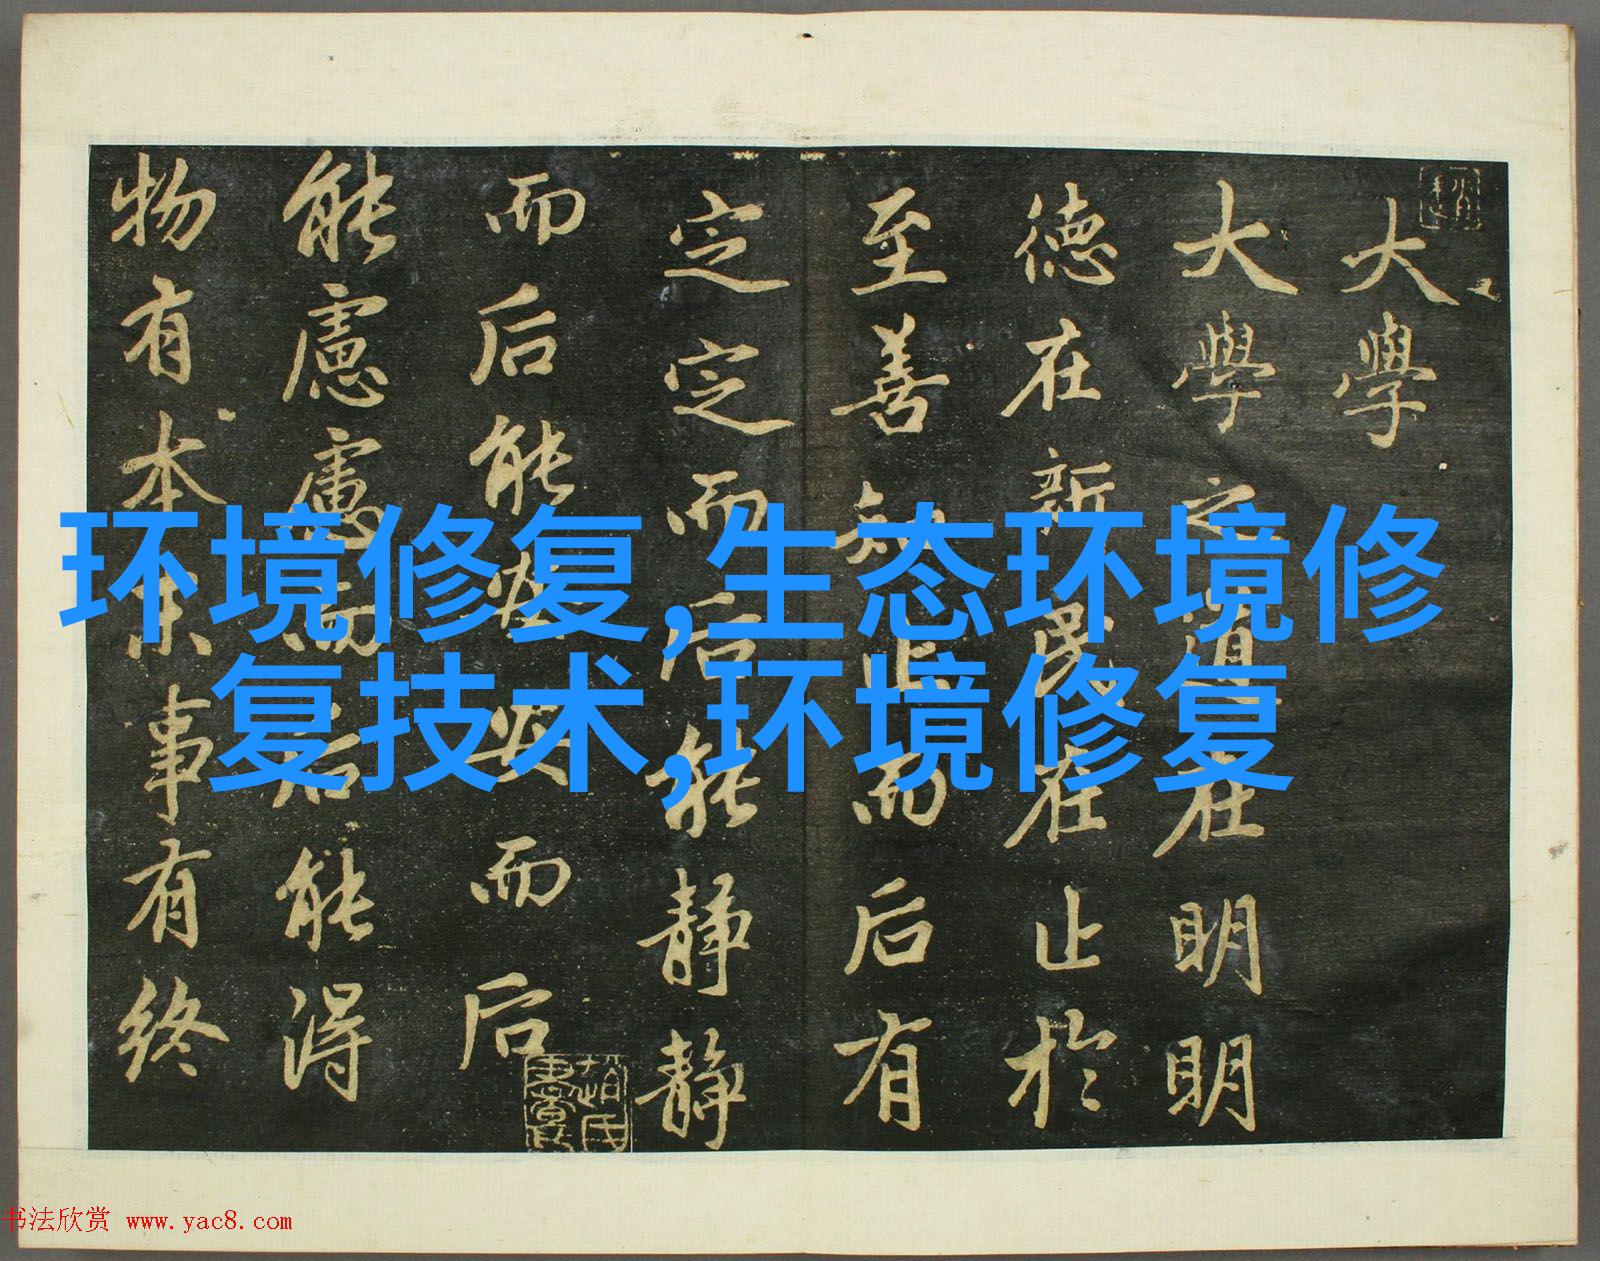 大學
大學之道在明明
德在新民在止於
至善知止而后有
定定而后能静静
而后能安安而后
能慮慮而后能得
物有本末事有終
环境修复,生态环境修
复技术,环境修复
书法欣赏 www.yac8.com